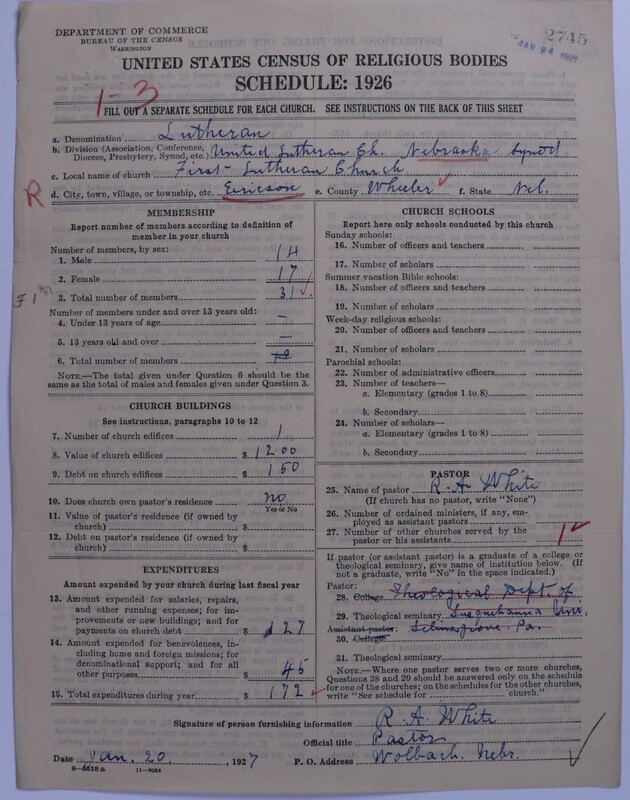 DEPARTMENT OF COMMERCE
BUREAU OF THE CENSUS
WASHINGTON
2745
JAN 24 1927
UNITED STATES CENSUS OF RELIGIOUS BODIES
SCHEDULE: 1926
1-3
FILL OUT A SEPARATE SCHEDULE FOR EACH CHURCH. SEE INSTRUCTIONS ON THE BACK OF THIS SHEET
a. Denomination Lutheran
b. Division (Association, Conference, Diocese, Presbytery, Synod, etc.) United Lutheran Ch. Nebraska Synod
c. Local name of church First - Lutheran Church
R d. City, town, village, or township, etc. Ericson e. County Wheeler f. State Neb.
MEMBERSHIP
Report number of members according to definition of
member in your church
Number of members, by sex:
1. Male 14
2. Female 17
3. Total number of members 31
Number of members under and over 13 years old:
4. Under 13 years of age —
5. 13 years old and over —
6. Total number of members
NOTE.—The total given under Question 6 should be
same as the total of males and females given under Question 3.
CHURCH BUILDINGS
See instructions, paragraphs 10 to 12
7. Number of church edifices 1
8. Value of church edifices $ 1200
9. Debt on church edifices $ 150
10. Does church own pastor's residence no
Yes or No
11. Value of pastor's residence (if owned by
church) $
12. Debt on pastor's residence (if owned by
church) $
EXPENDITURES
Amount expended by your church during last fiscal year
13. Amount expended for salaries, repairs,
and other running expenses; for im-
provements or new buildings; and for
payments on church debt $ 127
14. Amount expended for benevolences, in-
cluding home and foreign missions; for
denominational support; and for all
other purposes $ 45
15. Total expenditures during year $ 172
CHURCH SCHOOLS
Report here only schools conducted by this church
Sunday schools:
16. Number of officers and teachers
17. Number of scholars
Summer vacation Bible schools:
18. Number of officers and teachers
19. Number of scholars
Week-day religious schools:
20. Number of officers and teachers
21. Number of scholars
Parochial schools:
22. Number of administrative officers
23. Number of teachers—
a. Elementary (grades 1 to 8)
b. Secondary
24. Number of scholars—
a. Elementary (grades 1 to 8)
b. Secondary
PASTOR
25. Name of pastor R. A. White
(If church has no pastor, write "None")
26. Number of ordained ministers, if any, em-
ployed as assistant pastors
27. Number of other churches served by the
pastor or his assistants 1
If pastor (or assistant pastor) is a graduate of a college or
theological seminary, give name of institution below. (If
not a graduate, write "No" in the space indicated.)
Pastor:
28. College Theological Dept. of
29. Theological seminary Susquehanna Uni.
Assistant pastor: Selinsgrove, Pa.
30. College
31. Theological seminary
NOTE.—Where one pastor serves two or more churches,
Questions 28 and 29 should be answered only on the schedule
for one of the churches; on the schedules for the other churches,
write "See schedule for church."
Signature of person furnishing information R. A. White
Official title Pastor
Date Jan. 20, 1927 P. O. Address Wolbach, Nebr.
8—5518 a 11—9084